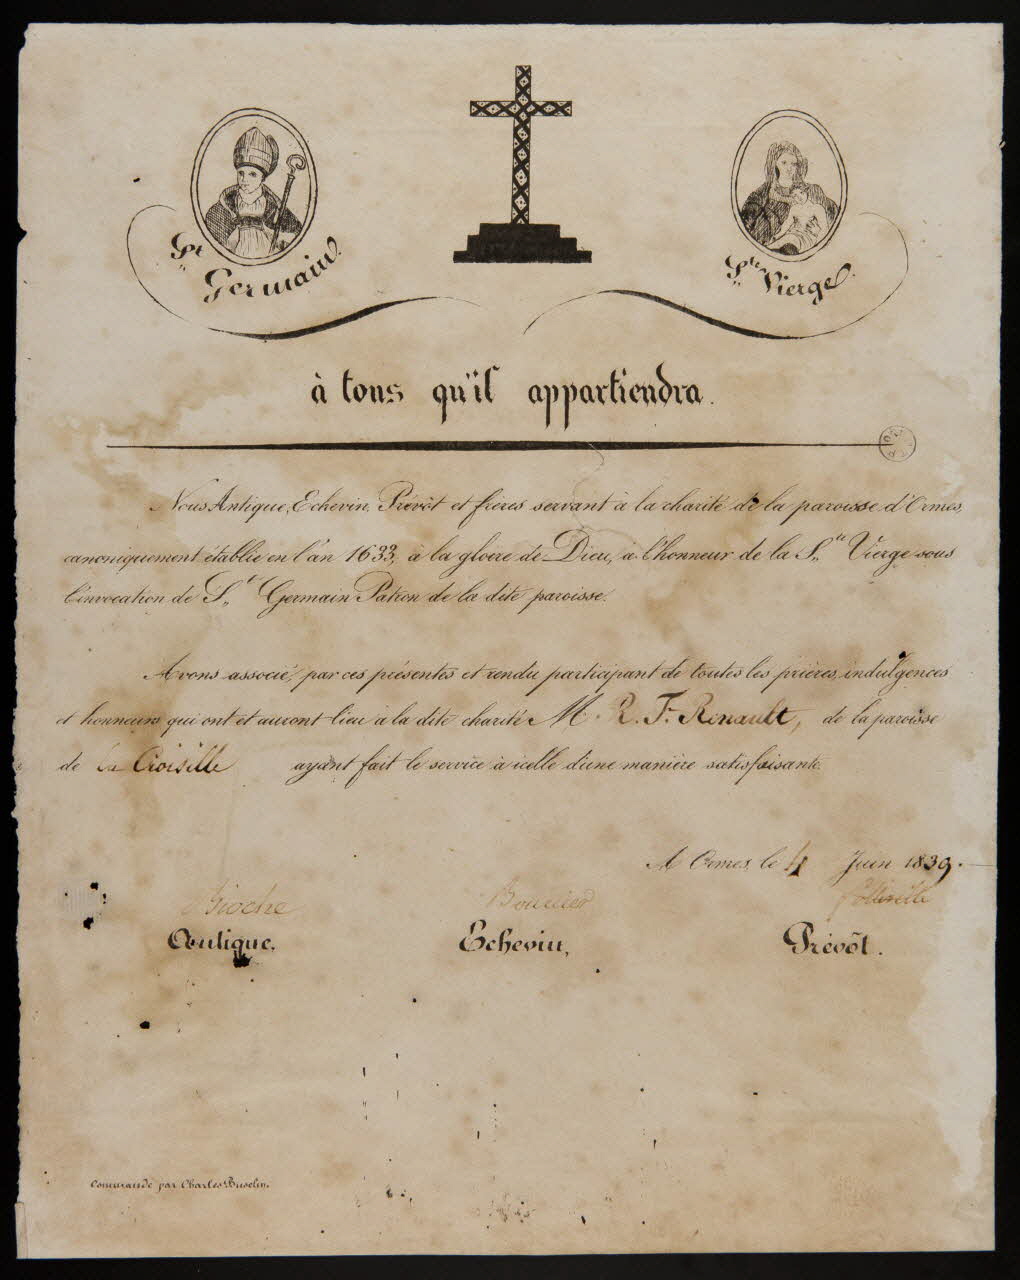 St Germain.
Ste Vierge.
à tous qu'il appartiendra.
Nous Antique, Echevin, Prévôt et frères servant à la charité de la paroisse d'Ormes,
canoniquement établie en l'an 1633, à la gloire de Dieu, à l'honneur de la Ste Vierge sous
l'invocation de St Germain Patron de la dite paroisse.
Avons associé, par ces présentes et rendu participant de toutes les prières, indulgences
et honneurs qui ont et auront lieu à la dite charité M. R. F. Renault, de la paroisse
de la Croisille ayant fait le service à icelle d'une manière satisfaisante.
A Ormes, le 4 Juin 1839.
Antique.
Echevin,
Prévôt.
Commandé par Charles Buselin.